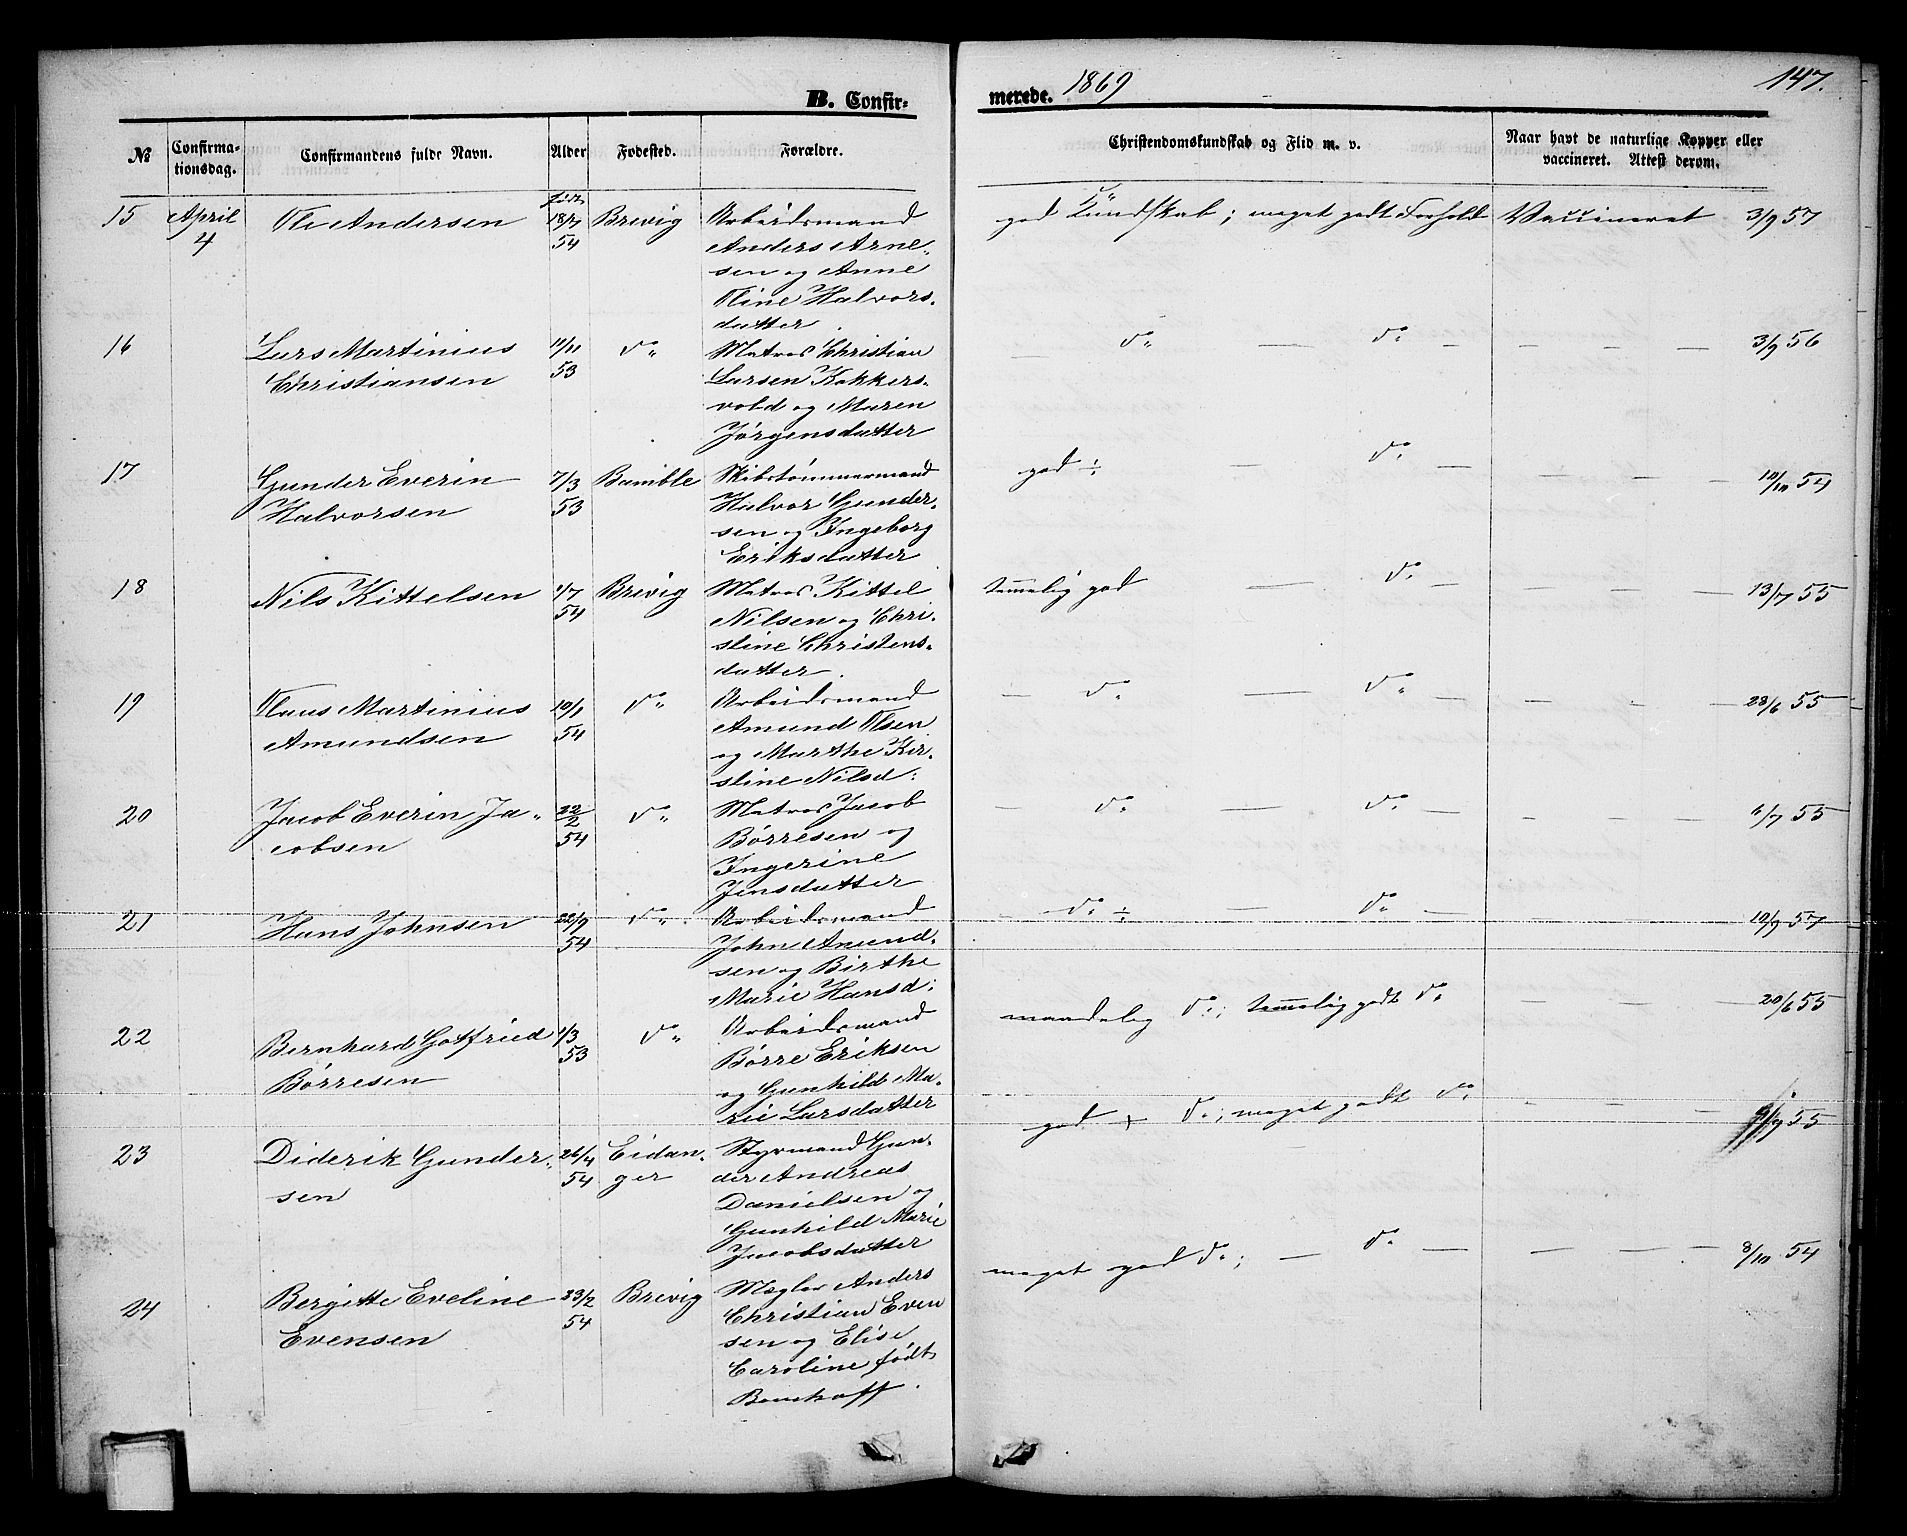 B. Confirmerede. 1869 147.
№ Confirmationsdag. Confirmandens fulde Navn. Alder Fødested. Forældre. Christendomskundskab og Flid m. v. Naar havt de naturlige Kopper eller vaccineret. Attest derom.
15 April 4 Ole Andersen født 18/7 54 Brevig Arbeidsmand
Anders Arne-
sen og Anne
Oline Halvors-
datter.
god Kundskab; meget godt Forhold Vaccineret 3/9 57
16 Lars Martinius
Christiansen 11/11 53 do
Matros Christian
Larsen Kokkers-
vold og Maren
Jørgensdatter
— do — do — — — — 3/9 56
17 Gunder Everin
Halvorsen 7/3 53 Bamble
Skibstømmermand
Halvor Gunder-
sen og Ingeborg
Eriksdatter
god ÷ — do — — — — 10/10 54
18 Nils Kittelsen 4/7 54 Brevig
Matros Kittel
Nilsen og Chri-
stine Christens-
datter.
temmelig god — do — — — — 13/7 55
19 Olaus Martinius
Amundsen 10/1 54 do
Arbeidsmand
Amund Olsen
og Marthe Kir-
stine Nilsd:
— do — do — — — — 28/6 55
20 Jacob Everin Ja-
cobsen 22/2 54 do
Matros Jacob
Børresen og
Ingerine
Jensdatter
— do — do — — — — 6/7 55
21 Hans Johnsen 22/9 54 do
Arbeidsmand
John Amund-
sen og Birthe
Marie Hansd:
do ÷ — do — — — — 10/9 57
22 Bernhard Gotfried
Børresen 1/3 53 do
Arbeidsmand
Børre Eriksen
og Gunhild Ma-
rie Larsdatter
maadelig do; temmelig godt do — — — 20/6 55
23 Diderik Gunder-
sen 26/4 54 Eidan-
ger
Styrmand Gun-
der Andreas
Danielsen og
Gunhild Marie
Jacobsdatter
god + do; meget godt do — — — /9 55
24 Bergitte Eveline
Evensen 23/2 54 Brevig
Mægler Anders
Christian Even
sen og Elise
Caroline født
meget god do; — do — — — — 8/10 54